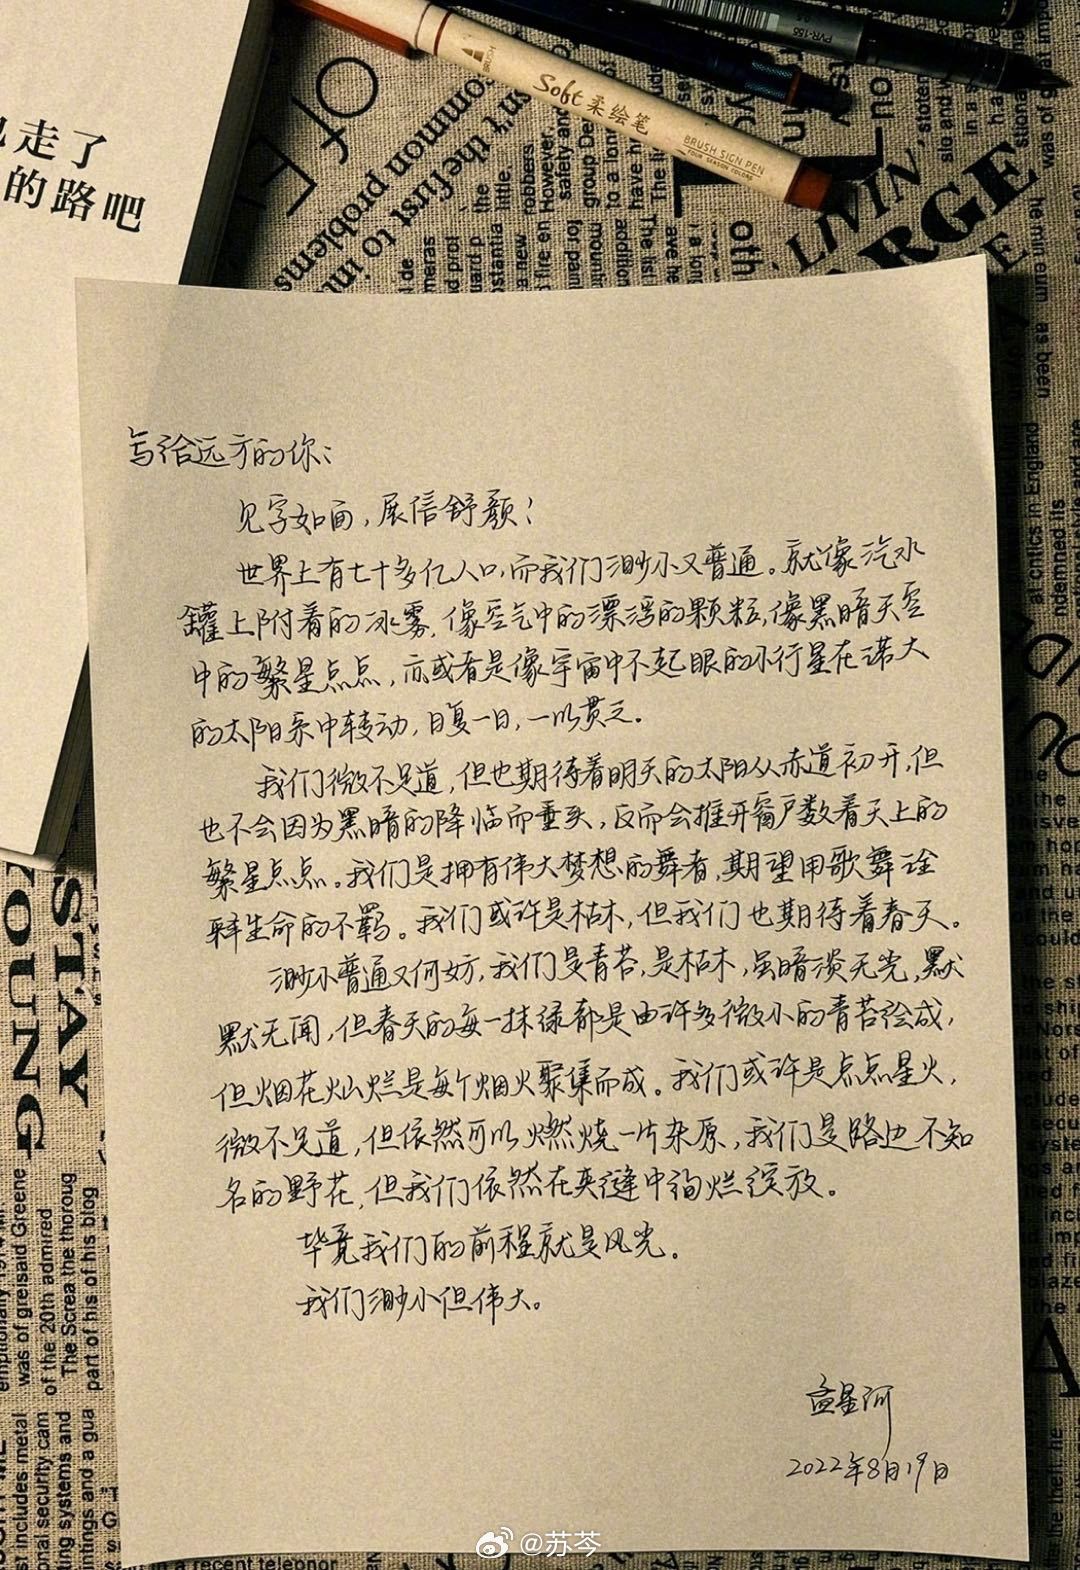 走了
的路吧
Soft 柔绘笔
BRUSH SIGN PEN
FOUR SEASONS COLORS
PVR-155
common problems
LIVIN'
写给远方的你：
见字如面，展信舒颜！
世界上有七十多亿人口，而我们渺小又普通。就像汽水
罐上附着的冰雾，像空气中的漂浮的颗粒，像黑暗天空
中的繁星点点，亦或者是像宇宙中不起眼的小行星在诺大
的太阳系中转动，日复一日，一以贯之。
我们微不足道，但也期待着明天的太阳从赤道初开，但
也不会因为黑暗的降临而垂头，反而会推开窗户数着天上的
繁星点点。我们是拥有伟大梦想的舞者，期望用歌舞诠
释生命的不羁。我们或许是枯木，但我们也期待着春天。
渺小普通又何妨，我们是青苔，是枯木，虽暗淡无光，默
默无闻，但春天的每一抹绿都是由许多微小的青苔绘成，
但烟花灿烂是每个烟火聚集而成。我们或许是点点星火，
微不足道，但依然可以燃烧一片杂原，我们是路边不知
名的野花，但我们依然在夹缝中绚烂绽放。
毕竟我们的前程就是风光。
我们渺小但伟大。
孟星河
2022年8月19日
STAY
OUNG
was of greisaid Greene
of the 20th admired
The Screa the thoroug
part of his of his blog
st includes metal
security cam
ting systems and
intings and a gua
in a recent teleonor
@苏芩